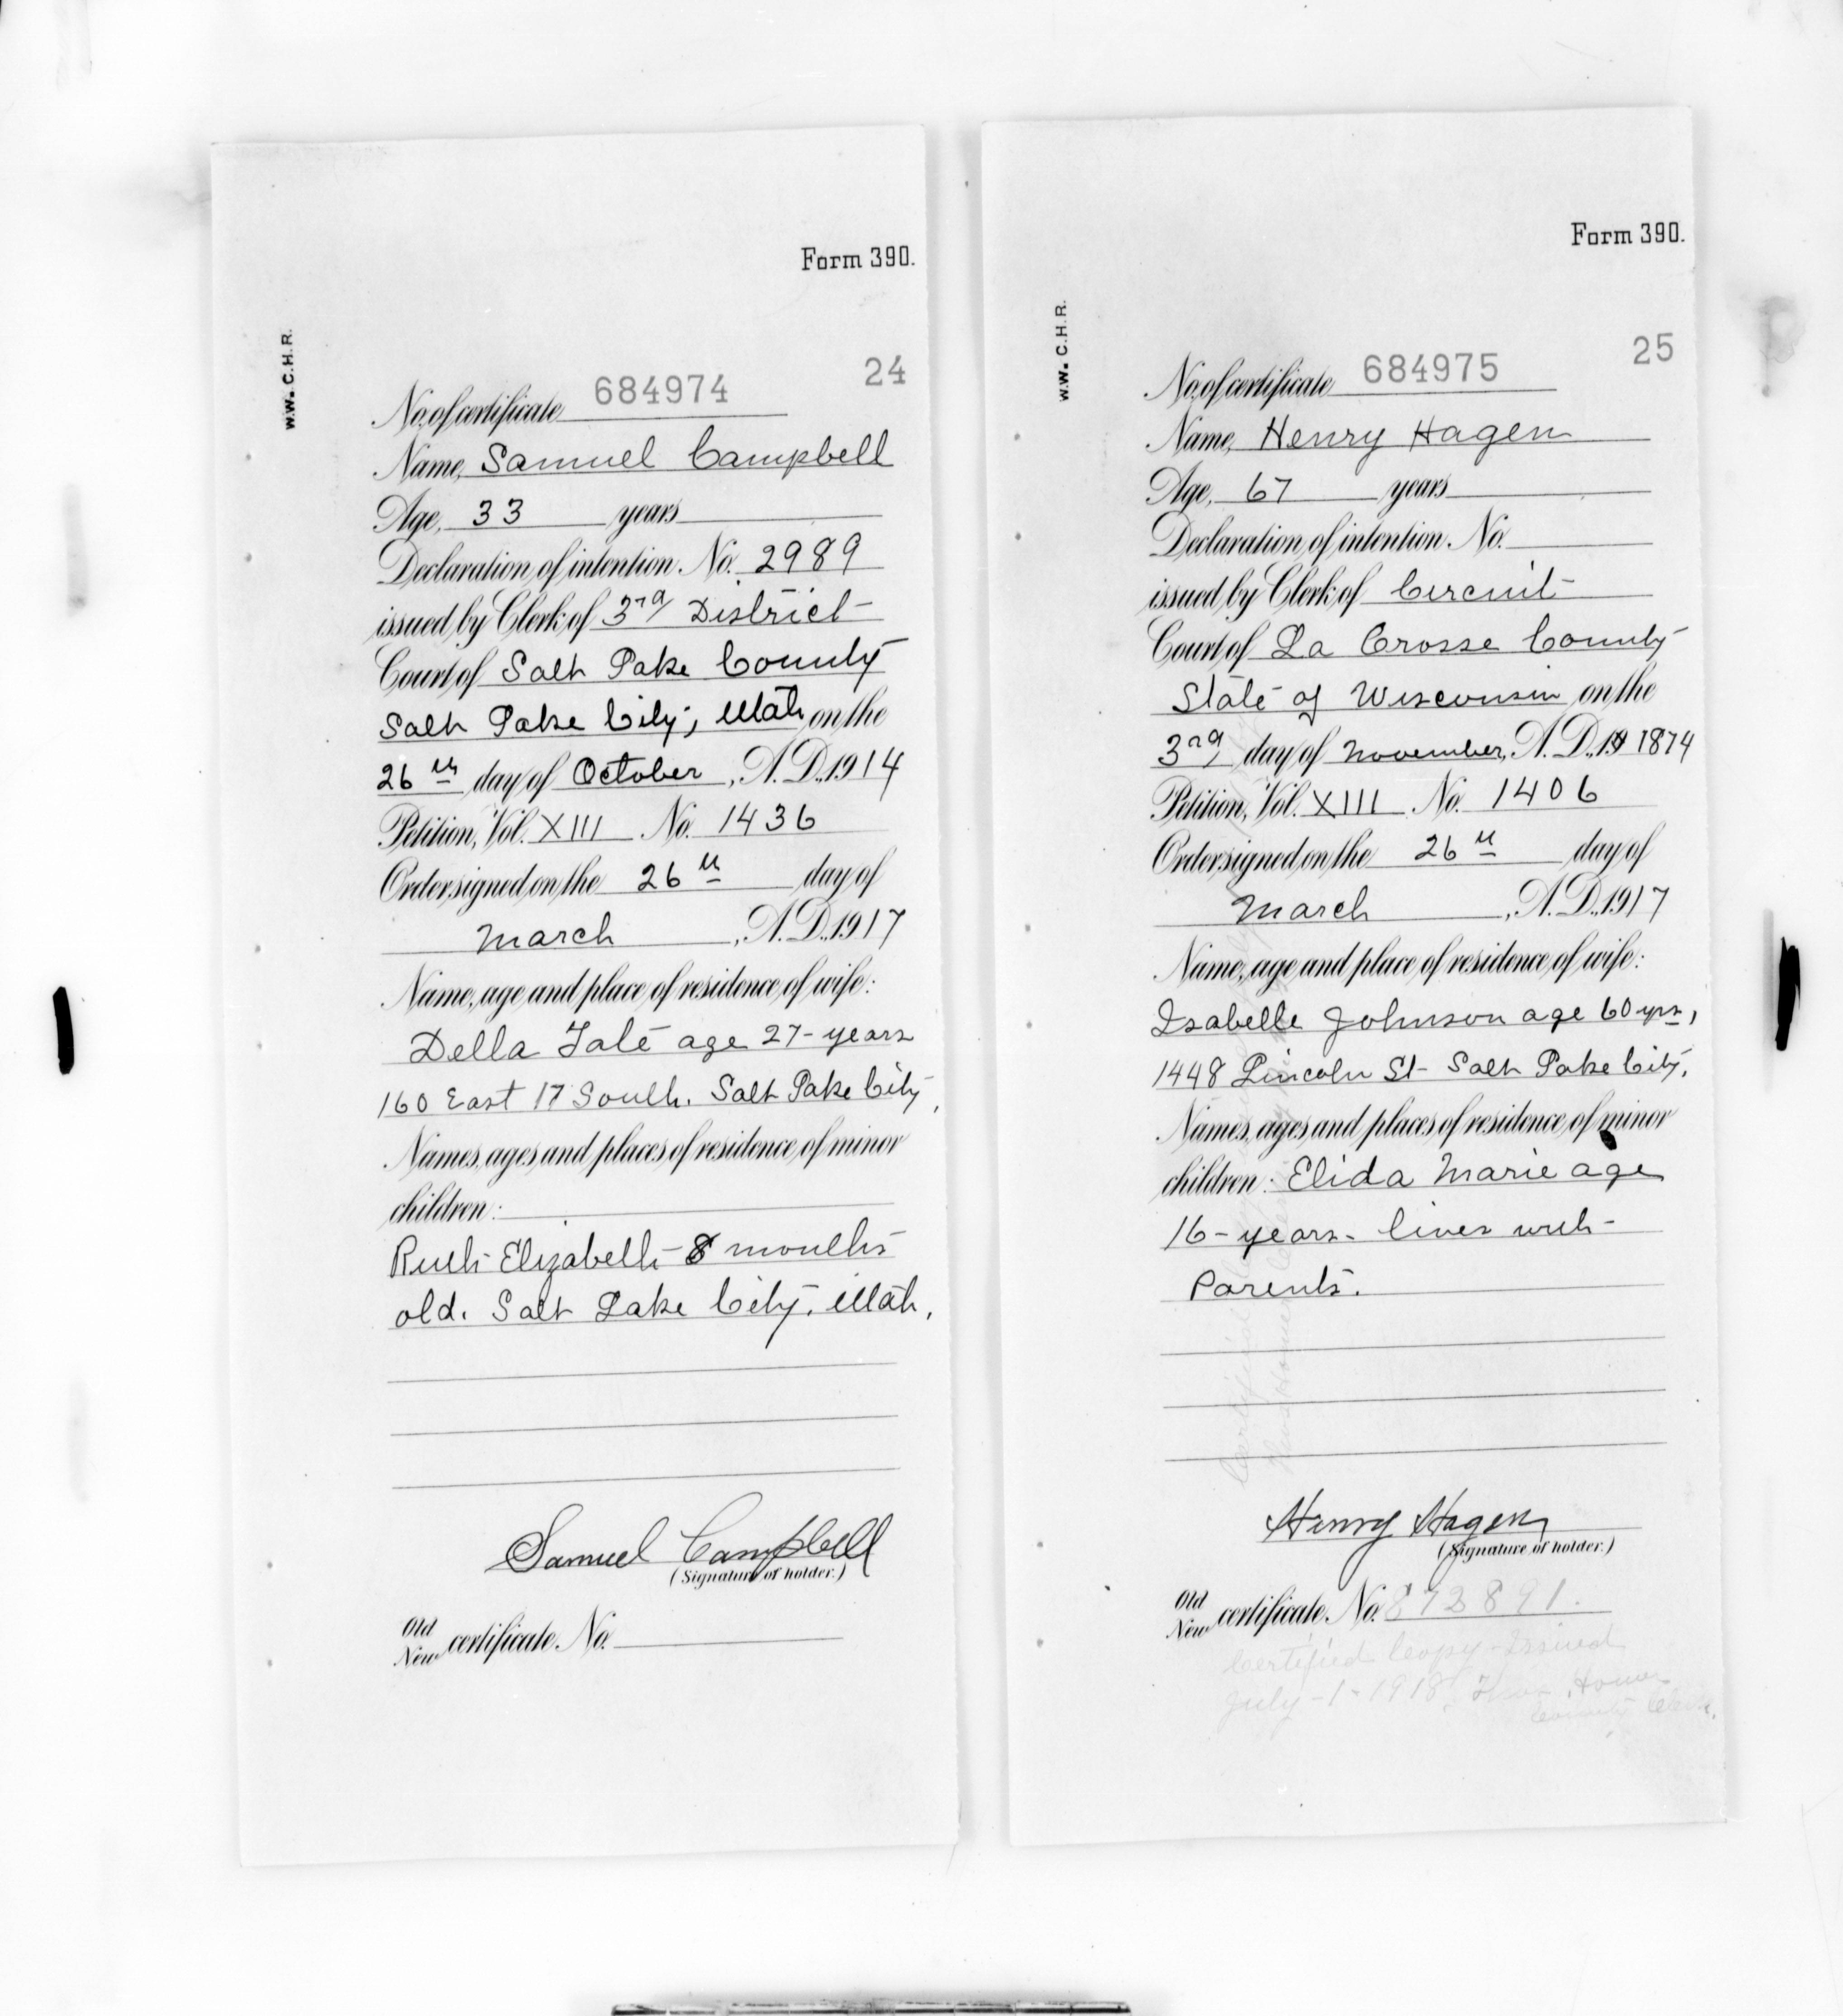 Form 390.
W.W. C.H.R.
24
No. of certificate 684974
Name, Samuel Campbell
Age, 33 years
Declaration of intention. No. 2989
issued by Clerk of 3rd District
Court of Salt Lake County
Salt Lake City, Utah on the
26th day of October, A.D. 1914
Petition, Vol. XIII No. 1436
Order signed on the 26th day of
March, A.D. 1917
Name, age and place of residence of wife:
Della Tate age 27-years
160 East 17 South. Salt Lake City,
Names, ages and places of residence of minor
children:
Ruth Elizabeth - 8 months
old. Salt Lake City, Utah.
Samuel Campbell
(Signature of holder.)
Old
New certificate No.
Form 390.
W.W. C.H.R.
25
No. of certificate 684975
Name, Henry Hagen
Age, 67 years
Declaration of intention. No.
issued by Clerk of Circuit
Court of La Crosse County
State of Wisconsin on the
3rd day of November, A.D. 19 1874
Petition, Vol. XIII No. 1406
Order signed on the 26th day of
March, A.D. 1917
Name, age and place of residence of wife:
Isabelle Johnson age 60 yrs,
1448 Lincoln St- Salt Lake City.
Names, ages and places of residence of minor
children: Elida Marie age
16-years- lives with-
Parents.
Henry Hagen
(Signature of holder.)
Old
New certificate No. 872891.
Certified Copy - Issued
July-1-1918. Homer
County Clerk.